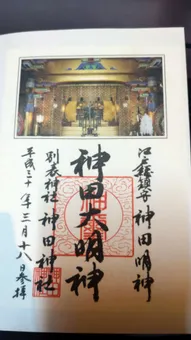 江戸総鎮守 神田明神
神田大明神
別表神社 神田神社
平成三十年三月十八日参拝